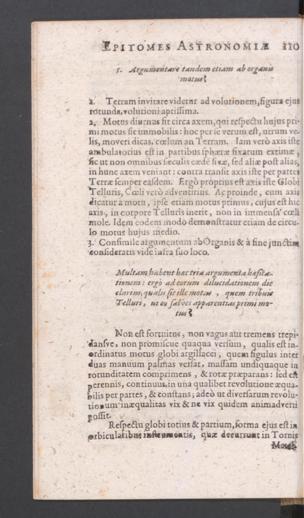 EPITOMES ASTRONOMIÆ 110
5. Argumentare tandem etiam ab organis
motus?
1. Terram invitare videtur ad volutionem, figura ejus
rotunda, volutioni aptissima.
2. Motus diurnus fit circa axem, qui respectu hujus pri-
mi motus sit immobilis: hoc per se verum est, utrum ve-
lis, moveri dicas, cœlum an Terram. Iam verò axis iste
ambulatorius est in partibus sphæræ fixarum extimæ,
sic ut non omnibus sæculis eædē fixæ, sed aliæ post alias,
in hunc axem veniant: contra transit axis iste per partes
Terræ semper easdem. Ergò proprius est axis iste Globi
Telluris, Cœli verò adventitius. Ac proinde, cum axis
dicatur à motu, ipse etiam motus primus, cujus est hic
axis, in corpore Telluris inerit, non in immensa cœli
mole. Idem eodem modo demonstratur etiam de circu-
lo motus hujus medio.
3. Consimile argumentum ab Organis & à fine junctim
consideratis vide infra suo loco.
Multam habent hæc tria argumenta hæsita-
tionem: ergò ad eorum dilucidationem dic
clarius, qualis sit ille motus, quem tribuis
Telluri, ut eo salves apparentias primi mo-
tus?
Non est fortuitus, non vagus aut tremens trepi-
dansve, non promiscue quaqua versum, qualis est in-
ordinatus motus globi argillacei, quem figulus inter
duas manuum palmas versat, massam undiquaque in
rotunditatem comprimens, & rotæ præparans: sed est
perennis, continuus, in una qualibet revolutione æqua-
bilis per partes, & constans; adeò ut diversarum revolu-
tionum inæqualitas vix & ne vix quidem animadverti
possit.
Respectu globi totius & partium, forma ejus est in
orbicularibus instrumentis, quæ decurrunt in Tornis